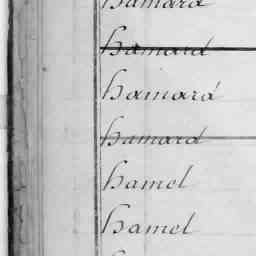 hamard
hamard
hamard
hamard
hamel
hamel